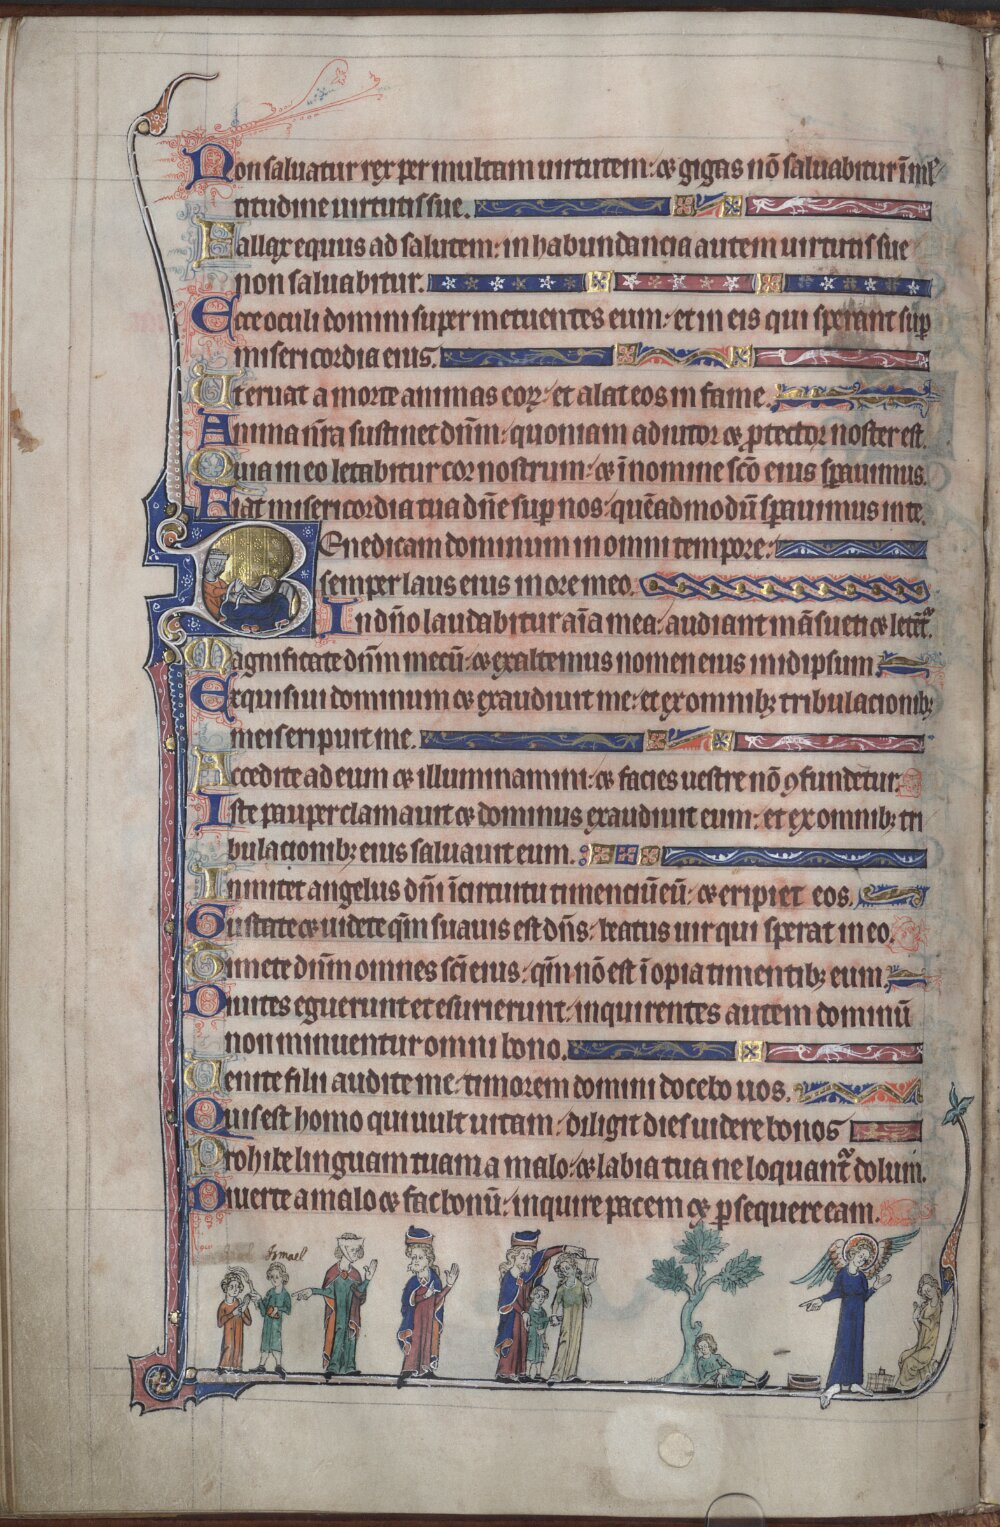 Non saluatur rex per multam uirtutem: ⁊ gigas nō saluabitur ī mul
titudine uirtutis sue.
Fallax equus ad salutem: in habundancia autem uirtutis sue
non saluabitur.
Ecce oculi domini super metuentes eum: et in eis qui sperant sup
misericordia eius.
Ut eruat a morte animas eoꝝ: et alat eos in fame.
Anima nr̄a sustinet dn̄m: quoniam adiutor ⁊ ꝓtector noster est.
Quia in eo letabitur cor nostrum: ⁊ ī nomine sc̄o eius sꝑauimus.
Fiat misericordia tua dn̄e sup nos: quēadmodū sꝑauimus in te.
Benedicam dominum in omni tempore:
semper laus eius in ore meo.
In dn̄o laudabitur aīa mea: audiant māsueti ⁊ letēt᷑.
Magnificate dn̄m mecū: ⁊ exaltemus nomen eius inidipsum
Exquisiui dominum ⁊ exaudiuit me: et ex omnibꝫ tribulacionibꝫ
meis eripuit me.
Accedite ad eum ⁊ illuminamini: ⁊ facies uestre nō ꝯfundetur.
Iste pauper clamauit ⁊ dominus exaudiuit eum: et ex omnibꝫ tri
bulacionibꝫ eius saluauit eum.
Inmitet angelus dn̄i ī circuitu timenciū eū: ⁊ eripiet eos.
Gustate ⁊ uidete qm̄ suauis est dn̄s: beatus uir qui sperat in eo.
Timete dn̄m omnes sc̄i eius: qm̄ nō est ī opia timentibꝫ eum
Diuites eguerunt et esurierunt: inquirentes autem dominū
non minuentur omni bono.
Uenite filii audite me: timorem domini docebo uos.
Quis est homo qui uult uitam: diligit dies uidere bonos
Prohibe linguam tuam a malo: ⁊ labia tua ne loquant᷑ dolum.
Diuerte a malo ⁊ fac bonū: inquire pacem ⁊ ꝑsequere eam.
Ismael